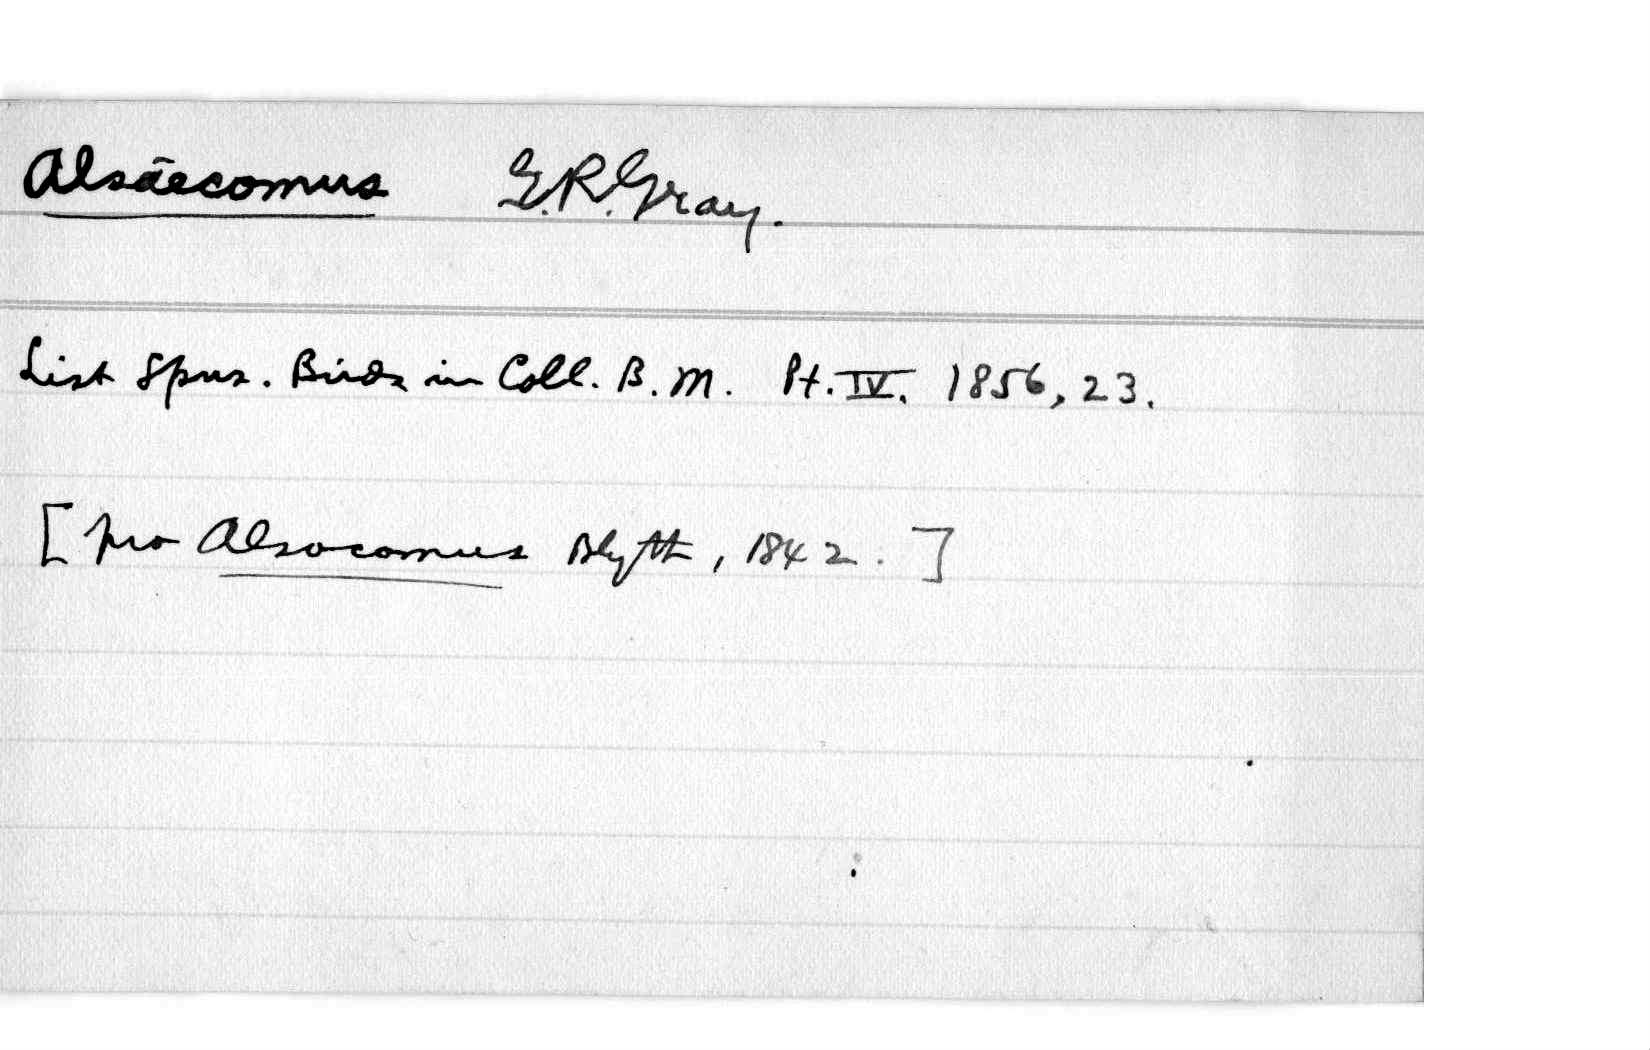 Alsæcomus G.R.Gray.
List Spns. Birds in Coll. B.M. Pt. IV. 1856, 23.
[pro Alsocomus Blyth, 1842.]